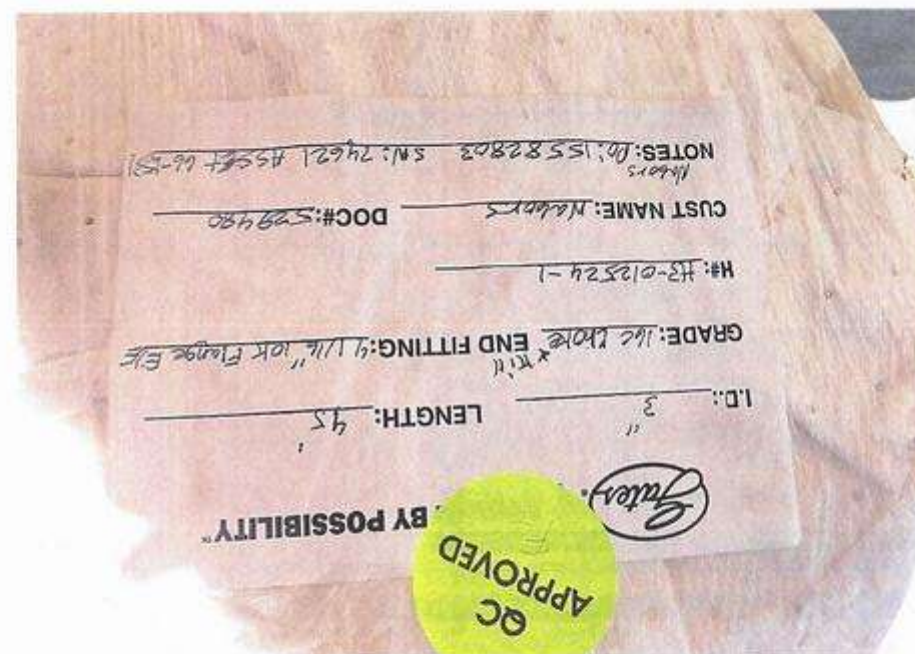 QC
APPROVED
Gates BY POSSIBILITY™
I.D.: 3" LENGTH: 45'
GRADE: 16C Choke & Kill END FITTING: 4 1/16" 10K Flange E/E
H#: H3-012524-1
CUST NAME: Nabors DOC#: 529490
NOTES: Nabors PO: 15582803 S/N: 74621 ASSET